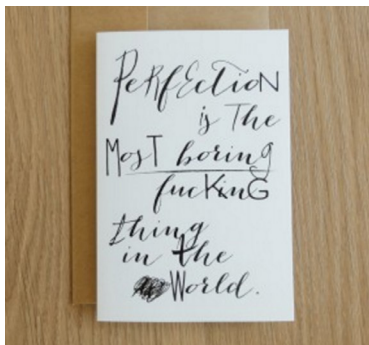 PeRfEctioN
is The
MosT boring
fucKinG
thing
in the
World.